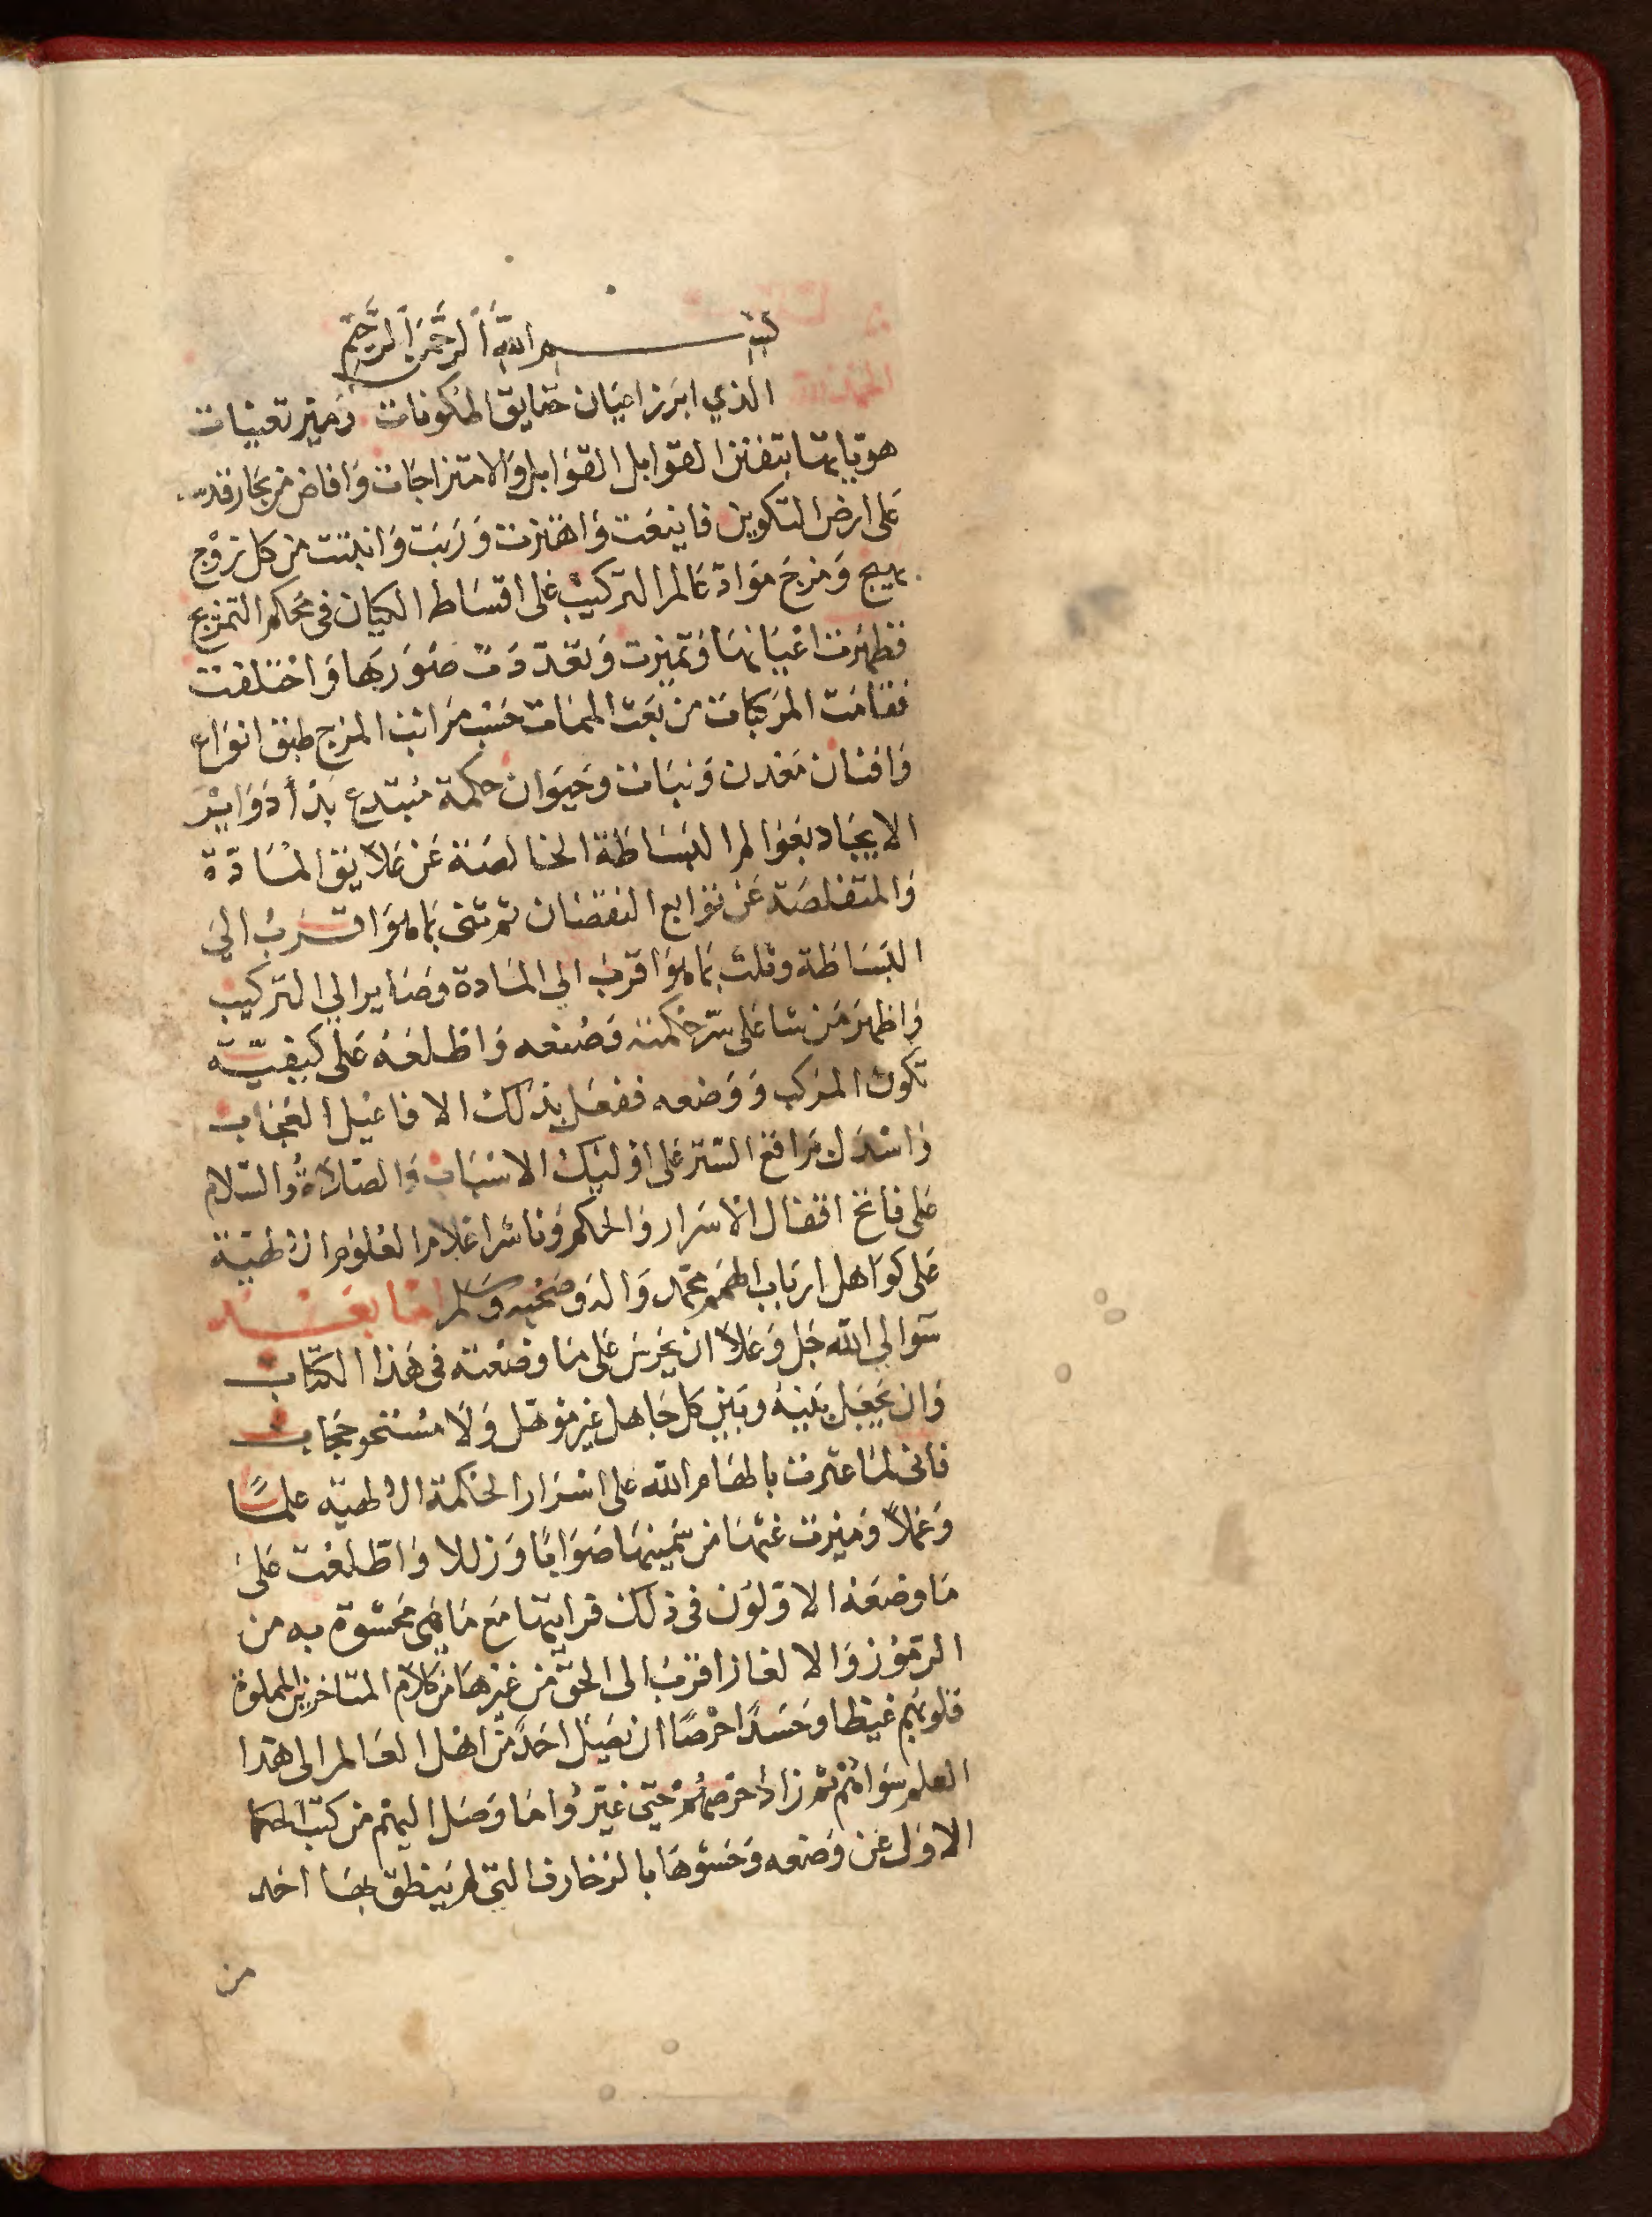 بسم الله الرحمن الرحيم
الحمد لله الذي ابرز اعيان حقايق المكونات وميز تعينات
هوياتها بتفنن القوابل القوابل والامتزاجات وافاض من بحار قدسه
على ارض التكوين فاينعت واهتزت وربت وانبتت من كل زوج
بهيج ومزج مواد عالم التركيب على اقساط الكيان في محكم التمزيج
فظهرت اعيانها وتميزت وتعددت صورها واختلفت
فقامت المركبات من بعث الممات حسب مراتب المزج طبق انواع
وافنان معدن ونبات وحيوان حكمة مبتدع بدأ دواير
الايجاد بعوالم البساطة الخالصة عن علايق المادة
والمتقلصة عن توابع النقصان ثم ثنى بما هو اقرب الى
البساطة وثلث بما هو اقرب الي المادة وصاير الي التركيب
واظهر من شا على سر حكمته وصنعه واطلعه على كيفية
تكون المركب ووضعه ففعل بذلك الافاعيل العجاب
واسدل براقع الستر على اوليك الاسباب والصلاة والسلام
على فاتح اقفال الاسرار والحكم وناشر اعلام العلوم الالهية
على كواهل ارباب الهمم محمد واله وصحبه وسلم اما بعد
سوالي الله جل وعلا ان يحرس على ما وضعته في هذا الكتاب
وان يجعل بينه وبين كل جاهل غير موهل ولا مستحق حجاب
فاني لما عثرت بالهام الله على اسرار الحكمة الالهية علمًا
وعملاً وميزت غثها من سمينها صوابًا وزللا واطلعت على
ما وضعه الاولون في ذلك فرايتها مع ما هي محشوة به من
الرموز والالغاز اقرب الى الحق من غيرها من كلام المتاخرين المملوة
قلوبهم غيظا وحسدًا حرصًا ان يصل احد من اهل العالم الى هذا
العلم سواهم ثم زاد حرصهم حتى غيروا ما وصل اليهم من كتب الحكما
الاول عن وضعه وحشوها بالزخارف التي لم ينطق بها احد
من